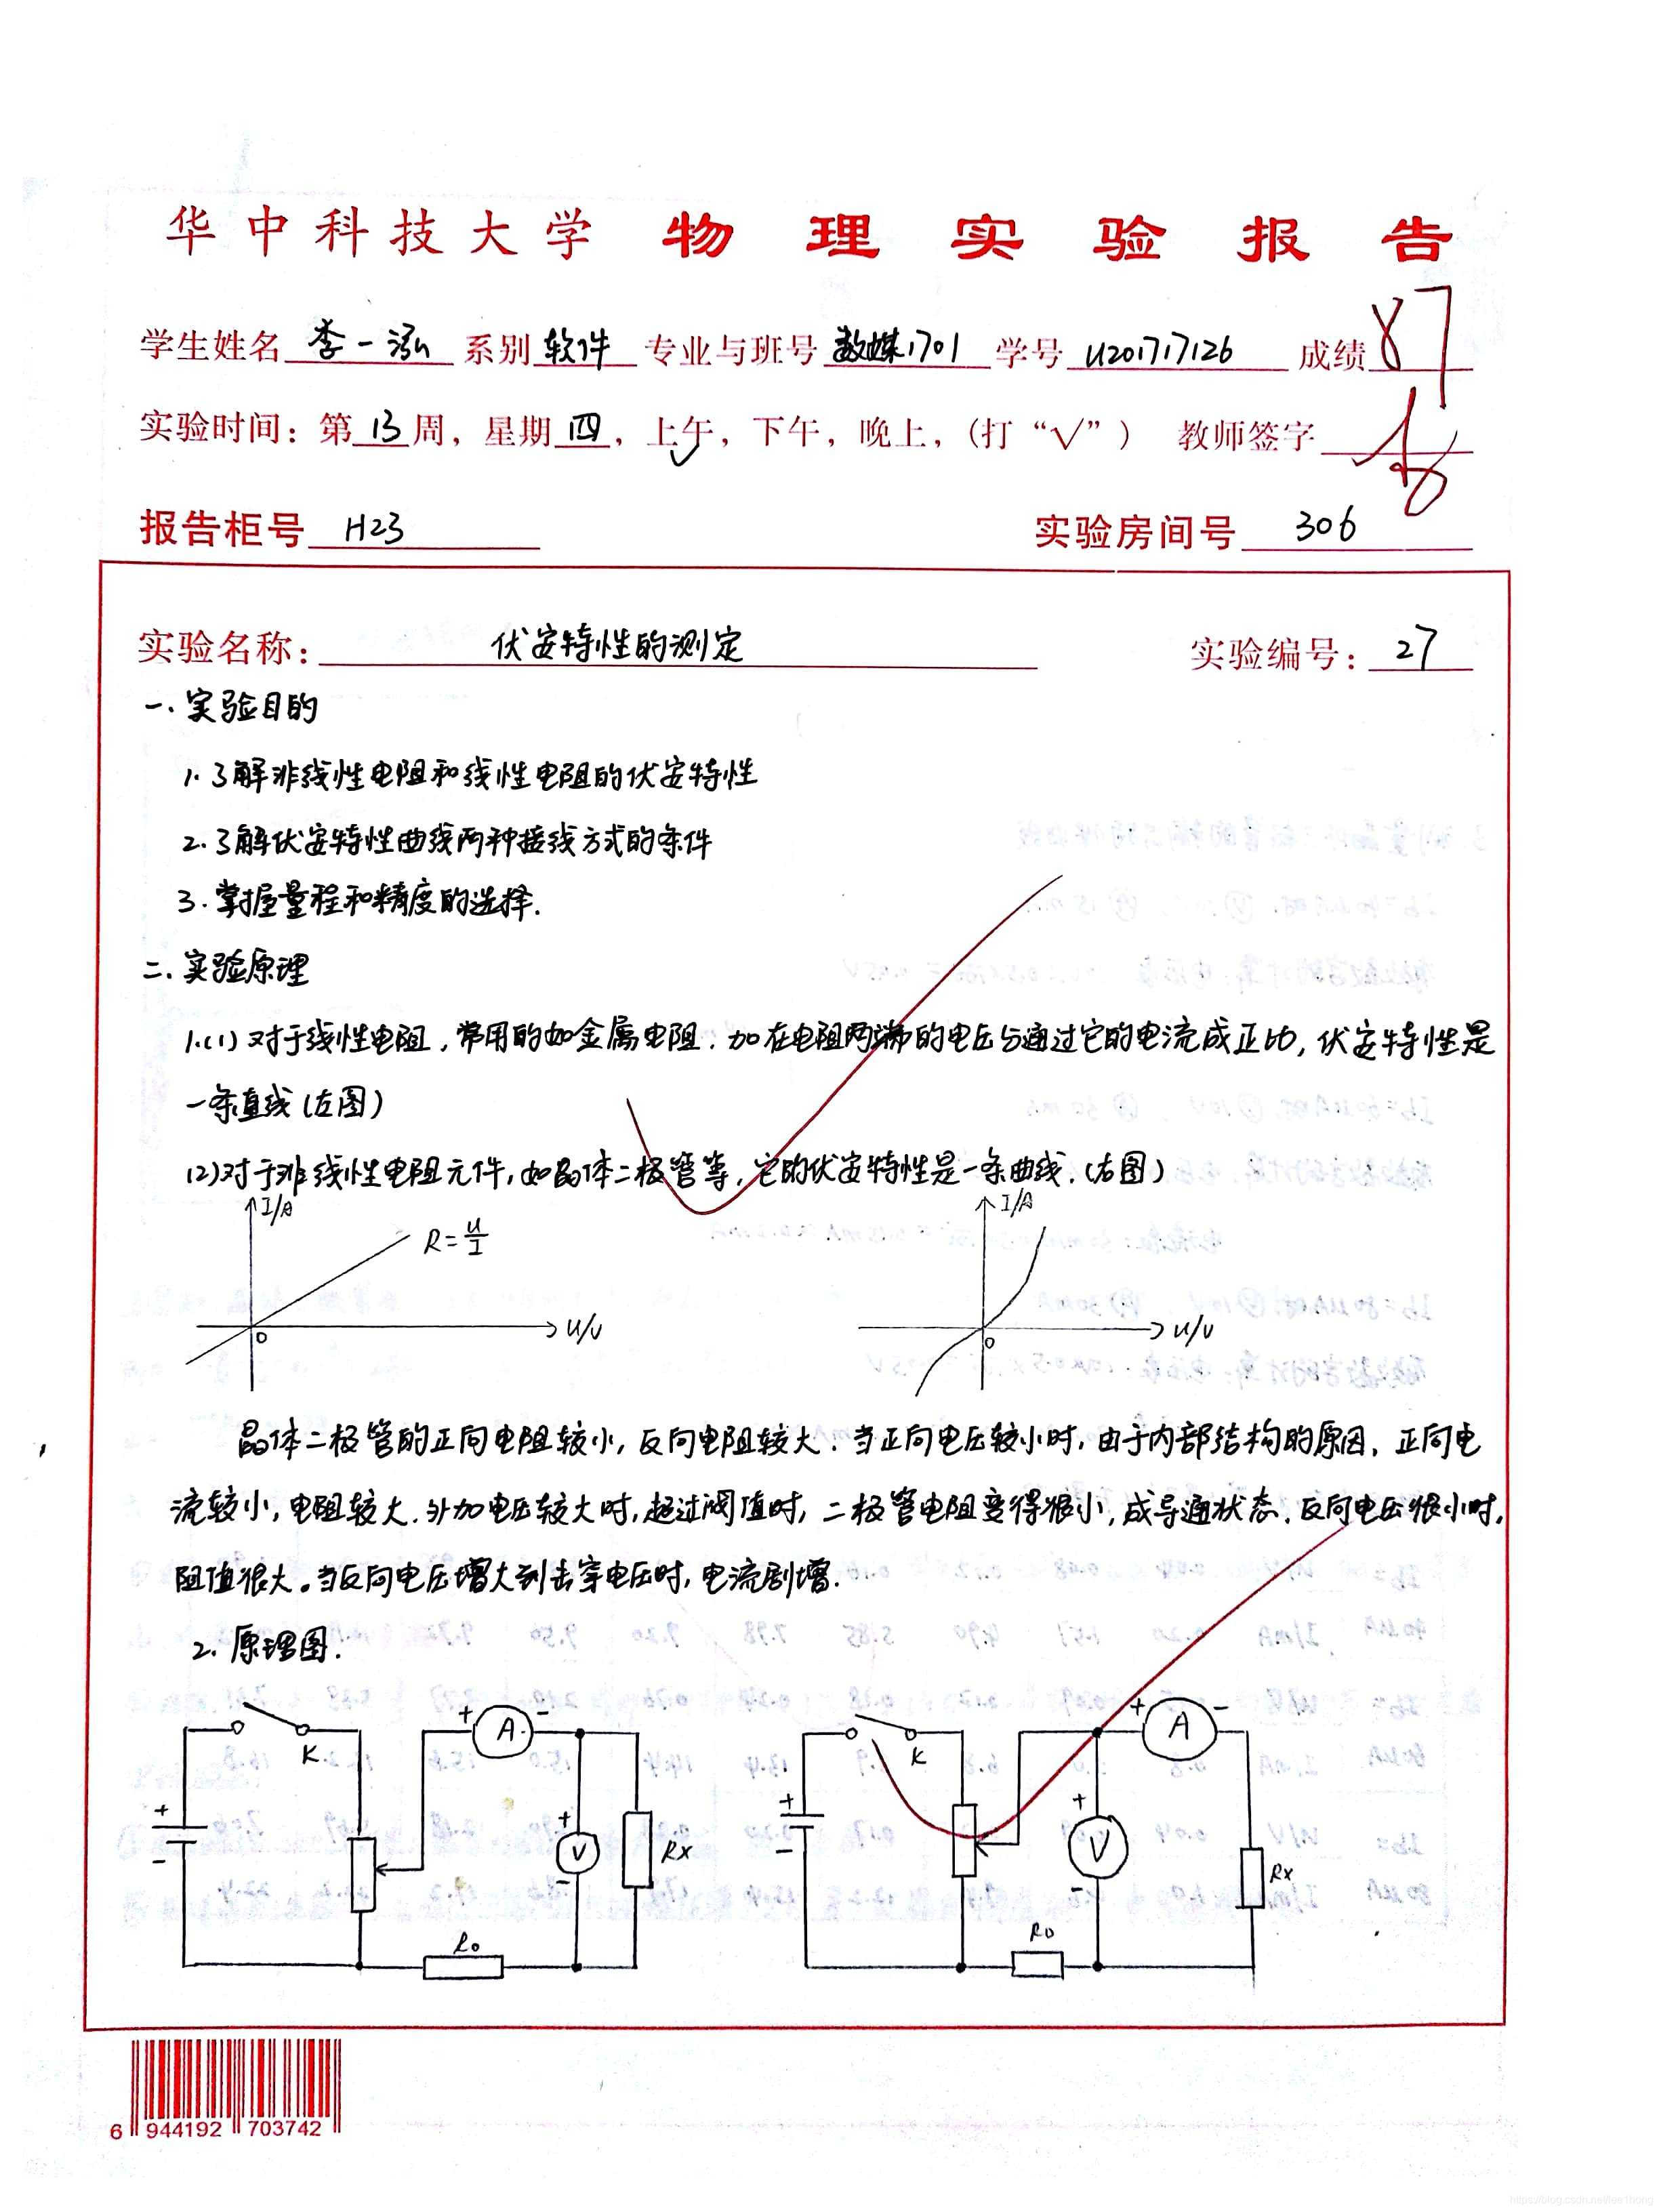 华中科技大学 物理实验报告
学生姓名 李一泓 系别 软件 专业与班号 数媒1701 学号 U201717126 成绩 87
实验时间：第 13 周，星期 四，上午，下午，晚上，(打“√”) 教师签字
报告柜号 H23 实验房间号 306
实验名称： 伏安特性的测定 实验编号： 27
一. 实验目的
1. 了解非线性电阻和线性电阻的伏安特性
2. 了解伏安特性曲线两种接线方式的条件
3. 掌握量程和精度的选择.
二. 实验原理
1.(1) 对于线性电阻, 常用的如金属电阻. 加在电阻两端的电压与通过它的电流成正比, 伏安特性是
一条直线(左图)
(2)对于非线性电阻元件, 如晶体二极管等, 它的伏安特性是一条曲线. (右图)
I/A R=U/I U/V 0
I/A U/V 0
晶体二极管的正向电阻较小, 反向电阻较大. 当正向电压较小时, 由于内部结构的原因, 正向电
流较小, 电阻较大. 外加电压较大时, 超过阈值时, 二极管电阻变得很小, 成导通状态. 反向电压很小时,
阻值很大。当反向电压增大到击穿电压时, 电流剧增.
2. 原理图.
K + A - + - + V - Rx R0
K + A - + - + V - Rx R0
6 944192 703742